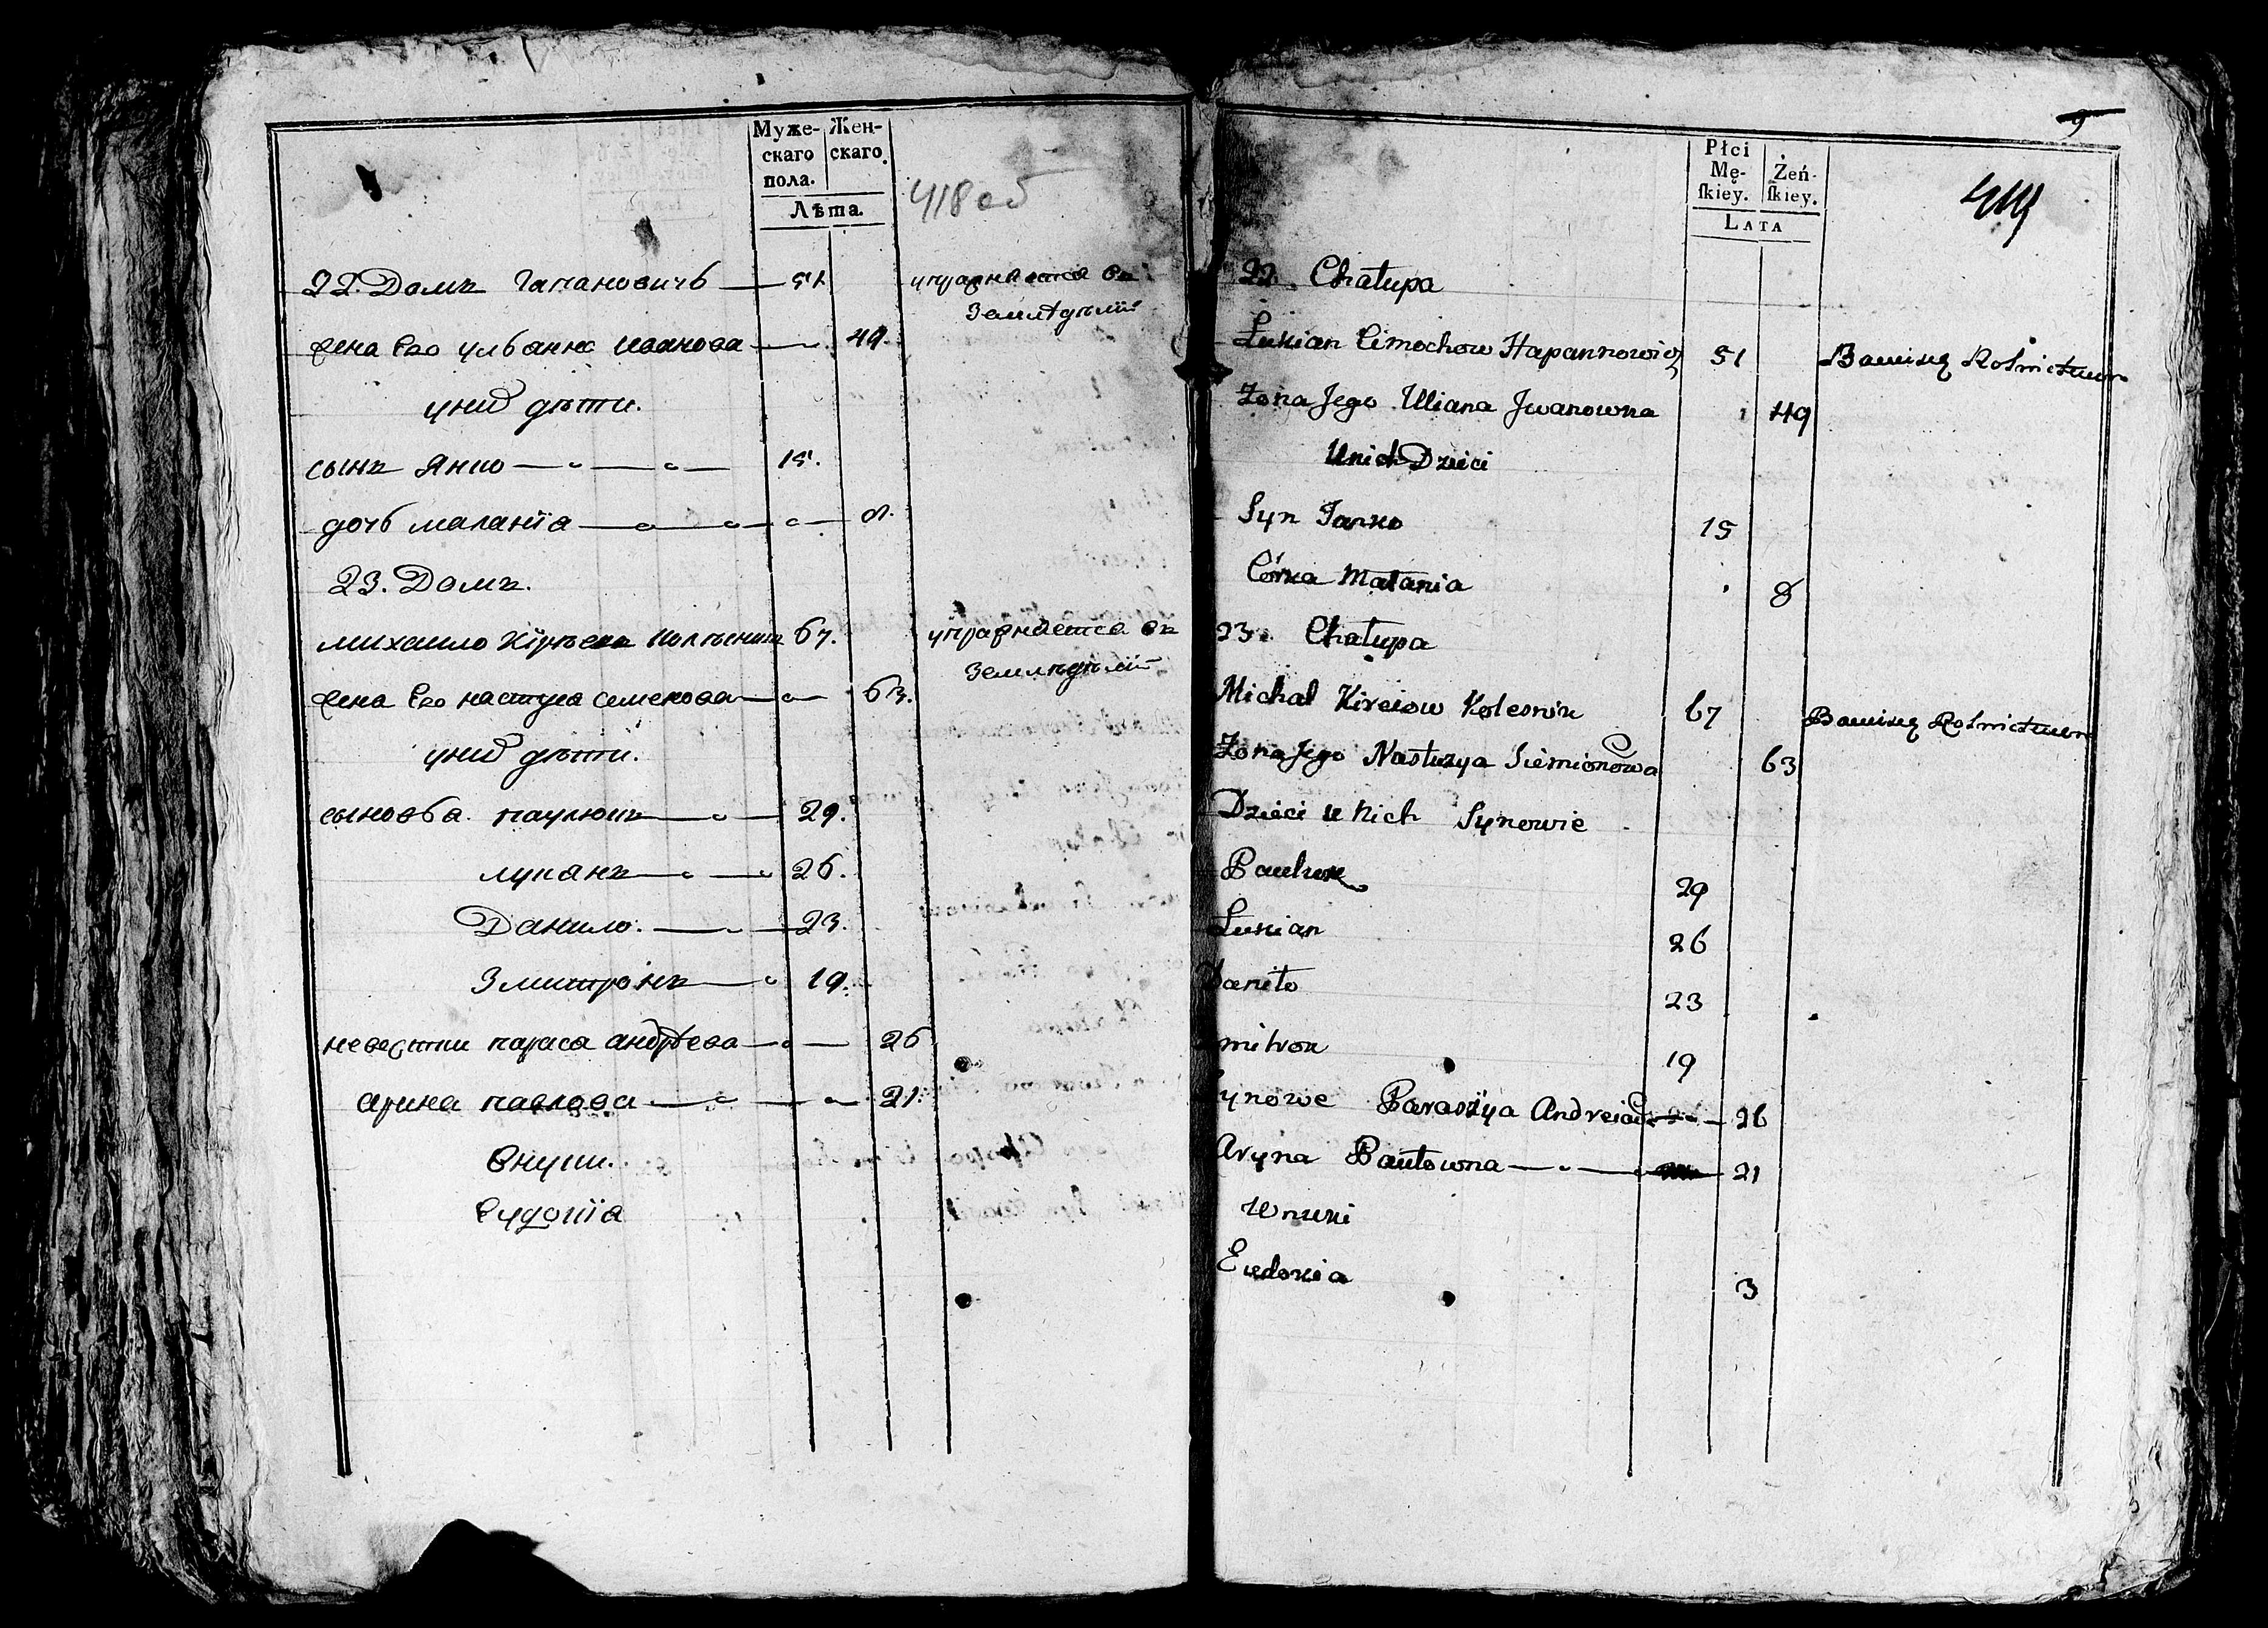 Муже-
скаго
пола.
Жен-
скаго.
Лѣта.
418 об
22. Домъ Гапановичъ — 51
упражняется въ
Земледѣлїи
жена Его Ульянна Иванова — 49.
унихъ дѣти.
сынъ Янко — 15.
дочь маланїа — 8.
23. Домъ.
михаило Кїрѣевъ Колѣсникъ 67.
упражняется въ
Земледѣлїи
жена Его настуся семенова — 63.
унихъ дѣти.
сыновья. паулюкъ — 29.
лукянъ — 26.
Данило. — 23.
Змитрокъ — 19.
невестки параса андрѣева — 26
арина павлова — 21.
внуки.
Еудокїа
9
419
Płci
Mę-
ſkiey.
Żeń-
ſkiey.
LATA
22. Chałupa
Łukian Cimochow Hapannowicz 51
Bawiący Rolnictwem
Żona Jego Uliana Jwanowna 49
Unich Dzieci
Syn Janko 15
Córka Małania 8
23. Chałupa
Michał Kireiow Kolesnik 67
Bawiący Rolnictwem
Żona Jego Nastuzya Siemionowa 63
Dzieci u nich Synowie
Pauluk 29
Łukian 26
Daniło 23
mitrok 19
ynowe Paraszya Andreiow — 26
Aryna Pawłowna — 21
Wnuki
Eudokia 3